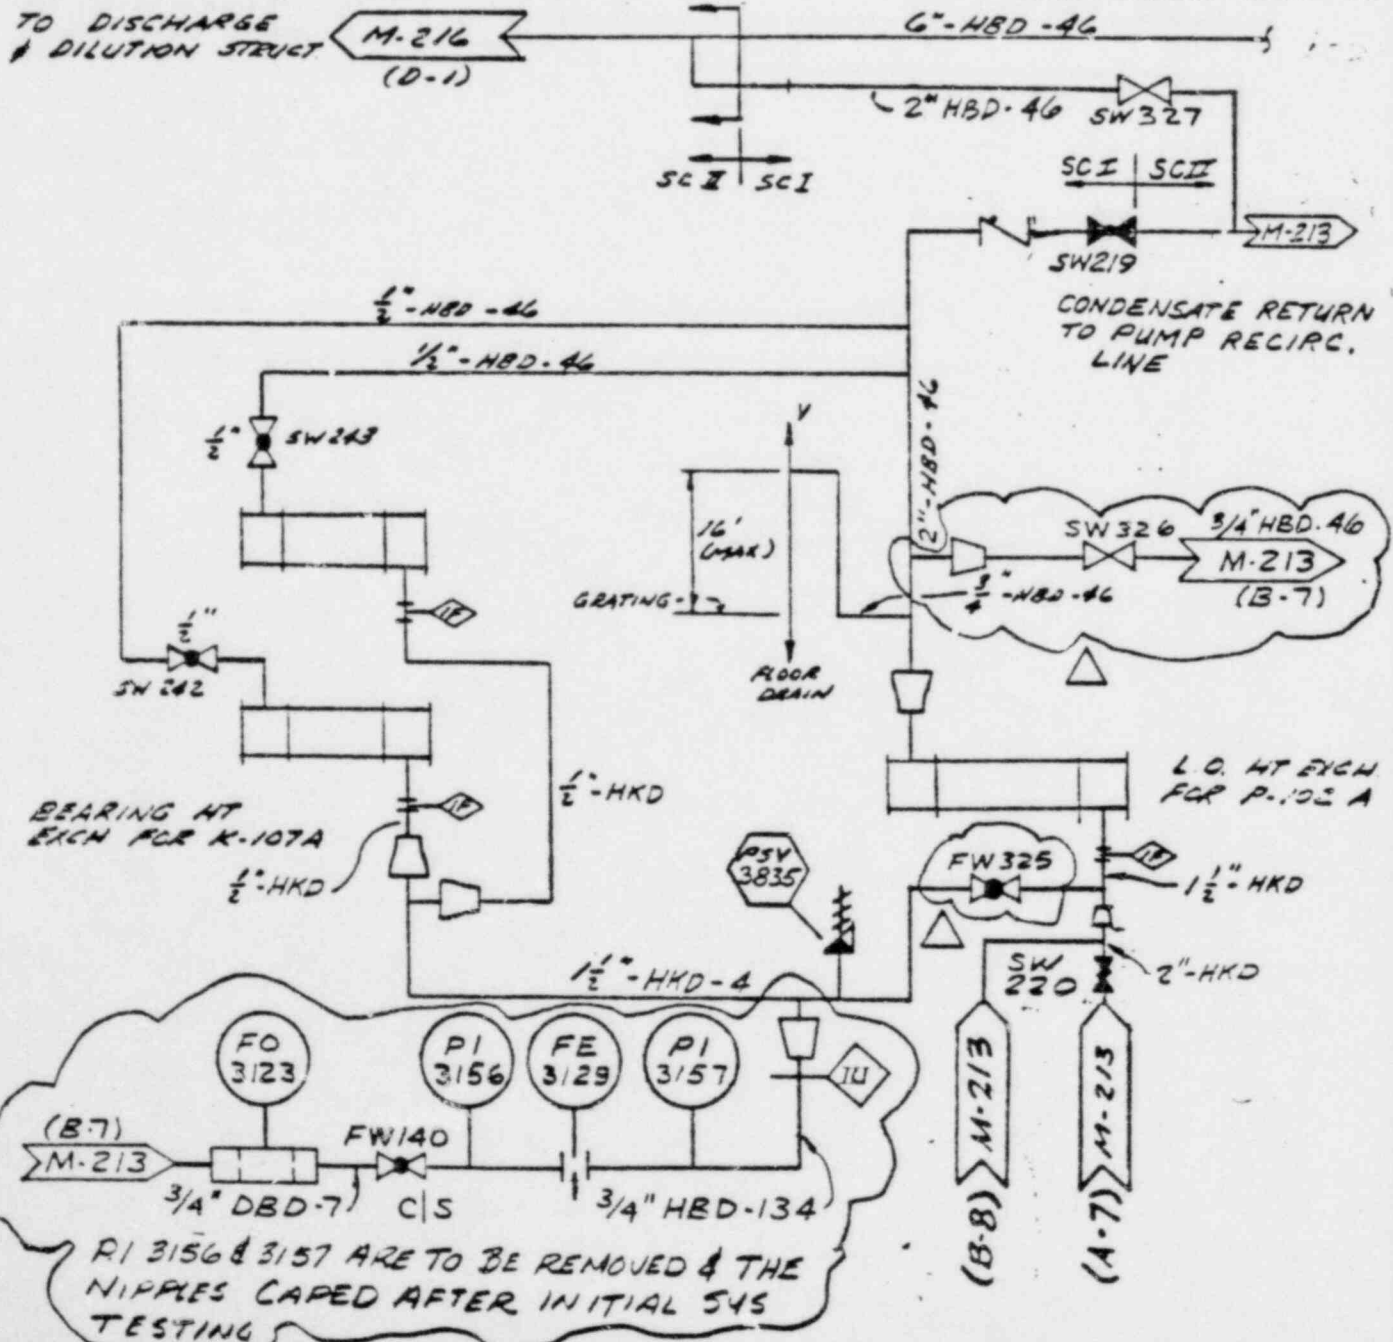 TO DISCHARGE
& DILUTION STRUCT
M-216
(D-1)
6"-HBD-46
2" HBD-46
SW327
SC II
SC I
SC I
SC II
M-213
SW219
CONDENSATE RETURN
TO PUMP RECIRC.
LINE
1/2"-HBD-46
1/2"-HBD-46
1/2"
SW243
2"-HBD-46
V
16'
(MAX)
GRATING
FLOOR
DRAIN
SW326
3/4" HBD-46
M-213
(B-7)
3/4"-HBD-46
1F
1/2"
SW 242
1F
BEARING HT
EXCH FOR K-107A
1/2"-HKD
1/2"-HKD
L.O. HT EXCH
FOR P-102 A
PSV
3835
FW325
1F
1 1/2"-HKD
1 1/2"-HKD-4
SW
220
2"-HKD
FO
3123
PI
3156
FE
3129
PI
3157
IU
M-213
(B-8)
M-213
(A-7)
(B-7)
M-213
FW140
3/4" DBD-7
C|S
3/4" HBD-134
PI 3156 & 3157 ARE TO BE REMOVED & THE
NIPPLES CAPED AFTER INITIAL SYS
TESTING